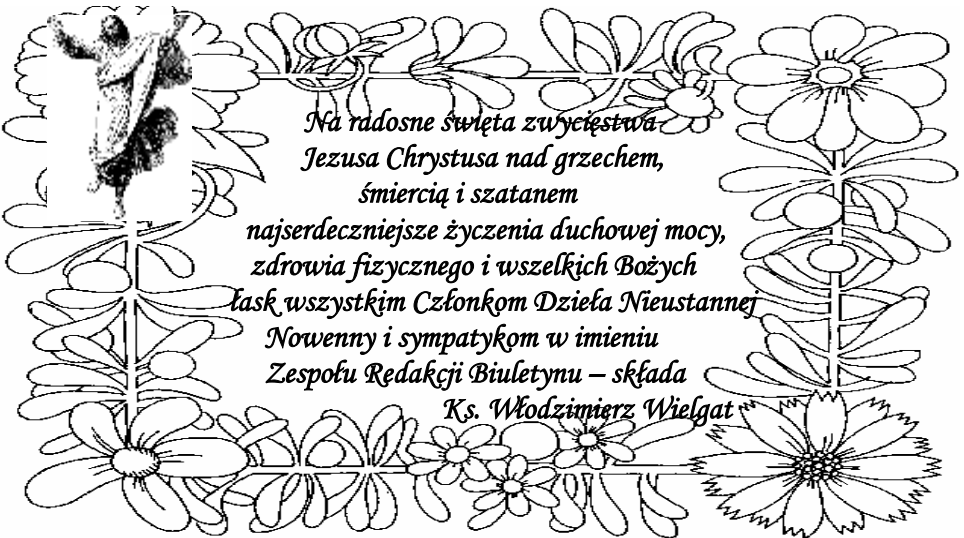 Na radosne święta zwycięstwa
Jezusa Chrystusa nad grzechem,
śmiercią i szatanem
najserdeczniejsze życzenia duchowej mocy,
zdrowia fizycznego i wszelkich Bożych
łask wszystkim Członkom Dzieła Nieustannej
Nowenny i sympatykom w imieniu
Zespołu Redakcji Biuletynu – składa
Ks. Włodzimierz Wielgat